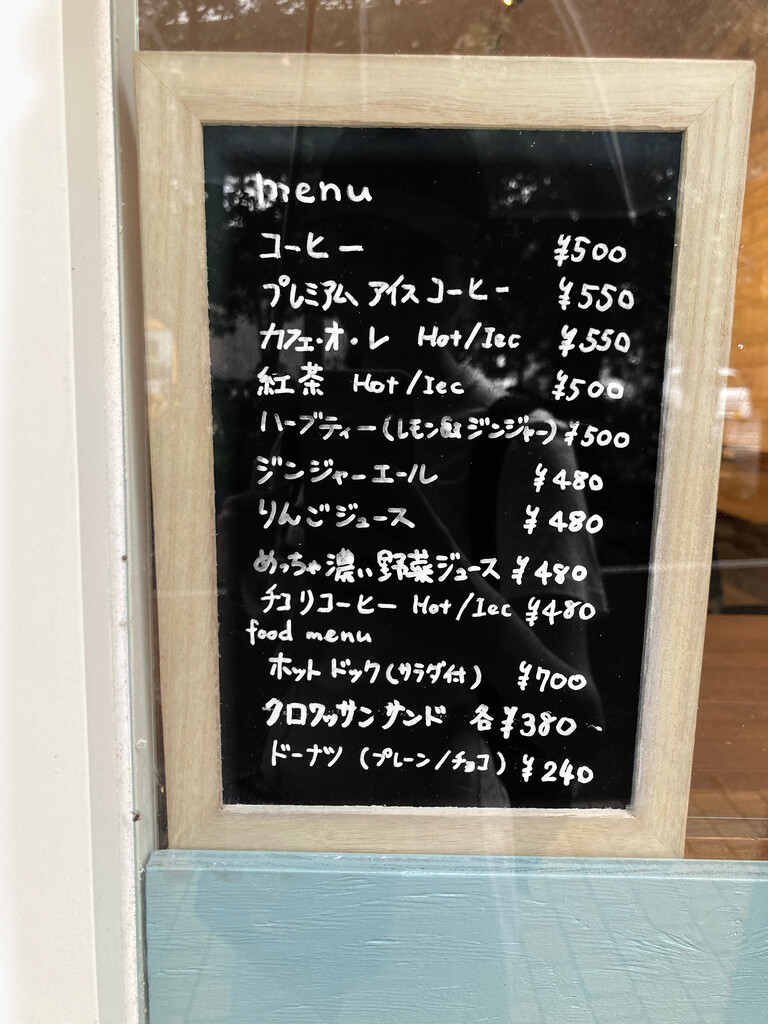 menu
コーヒー ¥500
プレミアム アイスコーヒー ¥550
カフェ・オ・レ Hot/Iec ¥550
紅茶 Hot/Iec ¥500
ハーブティー(レモン&ジンジャー) ¥500
ジンジャーエール ¥480
りんごジュース ¥480
めっちゃ濃い野菜ジュース ¥480
チコリコーヒー Hot/Iec ¥480
food menu
ホットドック(サラダ付) ¥700
クロワッサンサンド 各¥380~
ドーナツ (プレーン/チョコ) ¥240